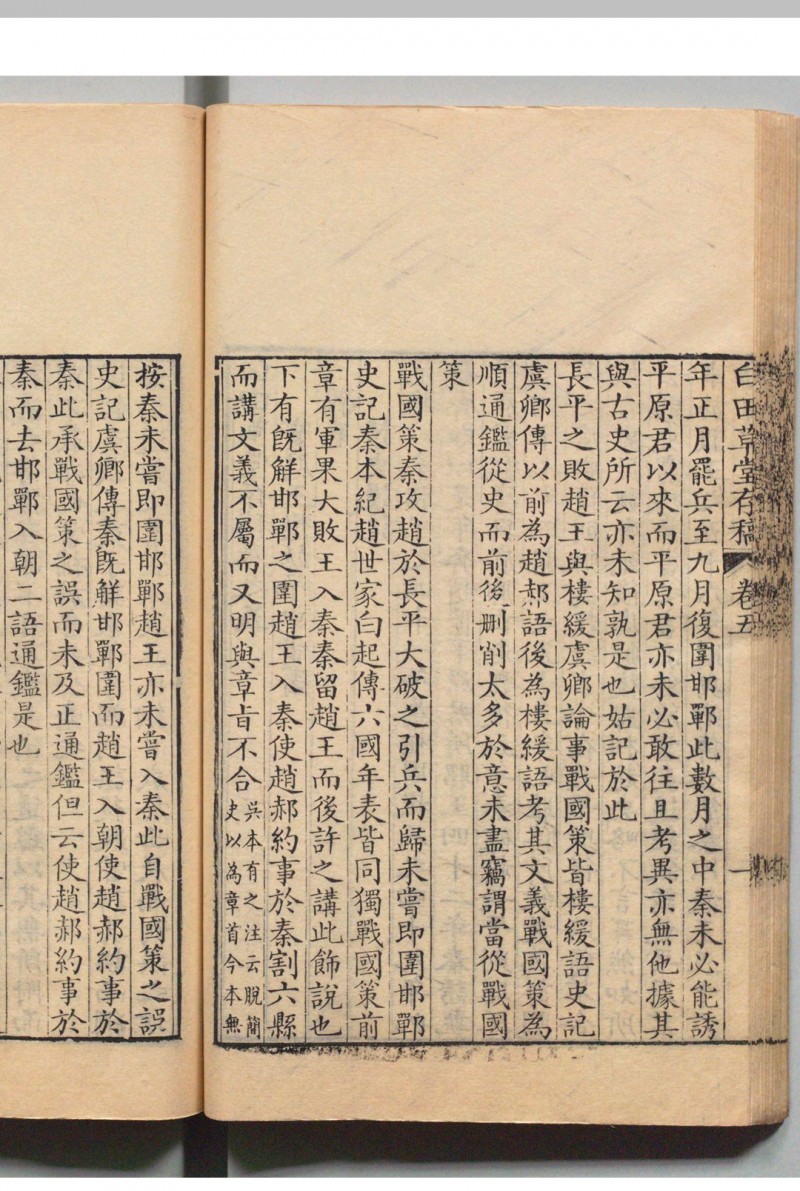 白田草堂存稿 卷五 一
年正月罷兵至九月復圍邯鄲此數月之中秦未必能誘
平原君以來而平原君亦未必敢往且考異亦無他據其
與古史所云亦未知孰是也姑記於此
長平之敗趙王與樓緩虞卿論事戰國策皆樓緩語史記
虞卿傳以前為趙郝語後為樓緩語考其文義戰國策為
順通鑑從史而前後刪削太多於意未盡竊謂當從戰國
策
戰國策秦攻趙於長平大破之引兵而歸未嘗即圍邯鄲
史記秦本紀趙世家白起傳六國年表皆同獨戰國策前
章有軍果大敗王入秦秦留趙王而後許之講此飾說也
下有既解邯鄲之圍趙王入秦使趙郝約事於秦割六縣
而講文義不屬而又明與章旨不合吳本有之注云脫簡
史以為章首今本無
按秦未嘗即圍邯鄲趙王亦未嘗入秦此自戰國策之誤
史記虞卿傳秦既解邯鄲圍而趙王入朝使趙郝約事於
秦此承戰國策之誤而未及正通鑑但云使趙郝約事於
秦而去邯鄲入朝二語通鑑是也